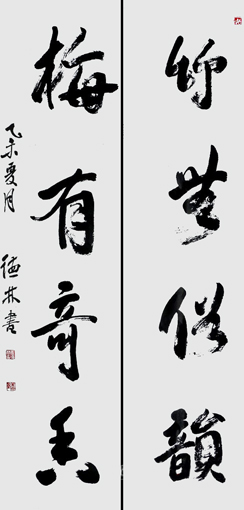 竹無俗韻
梅有奇香
乙未夏月
德林書